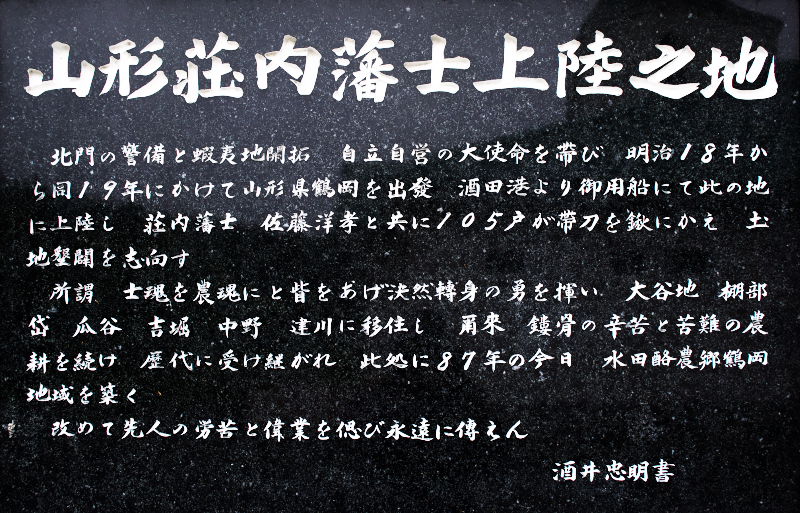 山形荘内藩士上陸之地
北門の警備と蝦夷地開拓　自立自営の大使命を帯び　明治18年か
ら同19年にかけて山形県鶴岡を出發　酒田港より御用船にて此の地
に上陸し　荘内藩士　佐藤洋孝と共に105戸が帯刀を鍬にかえ　土
地墾闢を志向す
所謂　士魂を農魂にと皆をあげ決然轉身の勇を揮い　大谷地　棚部
岱　瓜谷　吉堀　中野　建川に移住し　爾來　鏤骨の辛苦と苦難の農
耕を続け　歴代に受け継がれ　此処に87年の今日　水田酪農郷鶴岡
地域を築く
改めて先人の労苦と偉業を偲び永遠に傳えん
酒井忠明書